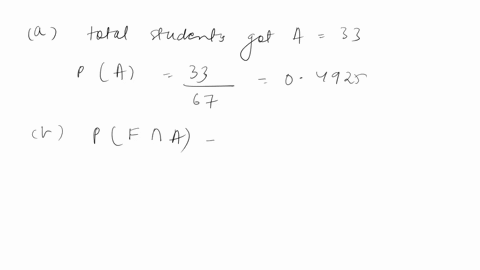 (a) total students got A = 33
P (A) = 33/67 = 0.4925
(b) P (F ∩ A) -